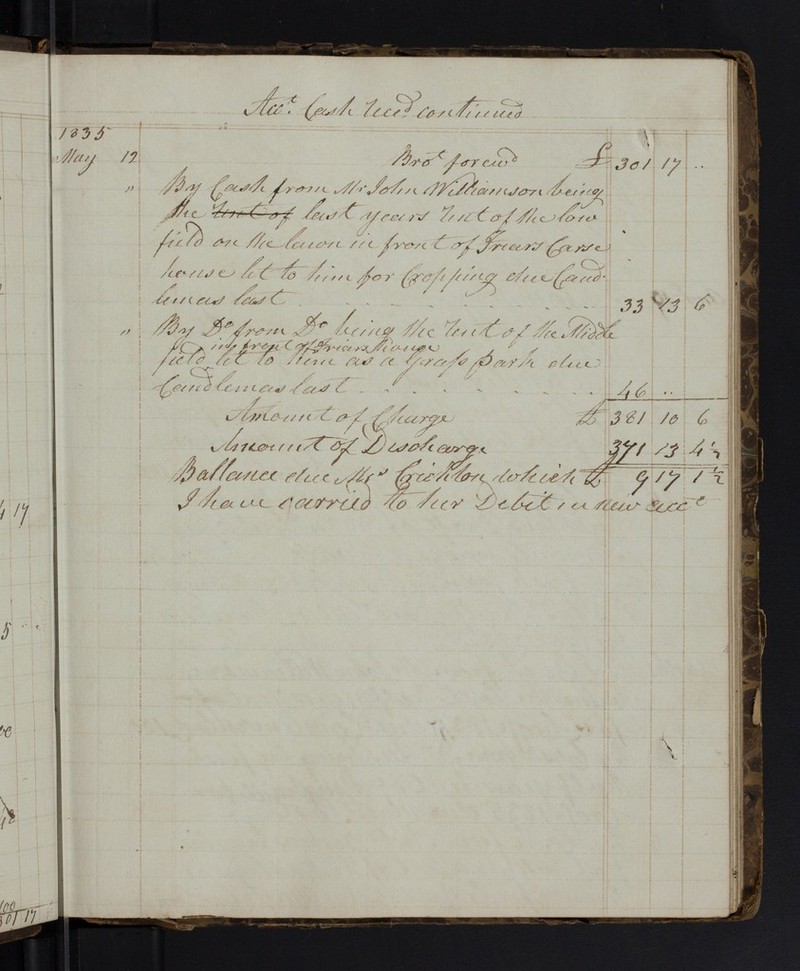 Acct. Cash Recd continued
1835
May 12 Brot forewd £ 301 17 ..
" By Cash from Mr John Williamson being
the rent of last years rent of the low
field on the lawn in front of Friars Carse
house let to him for Cropping due Cand-
lemas last 33 13 6
" By Do from Do being the rent of the Middle
in front of Friars house
field let to him as a Grass Park due
Candlemas last 46 ..
Amount of Charge £ 381 10 6
Amount of Discharge 371 13 4½
Ballance due Mrs Crichton which £ 9 17 1½
I have carried to her Debit in new acct
4 17
5
301 17